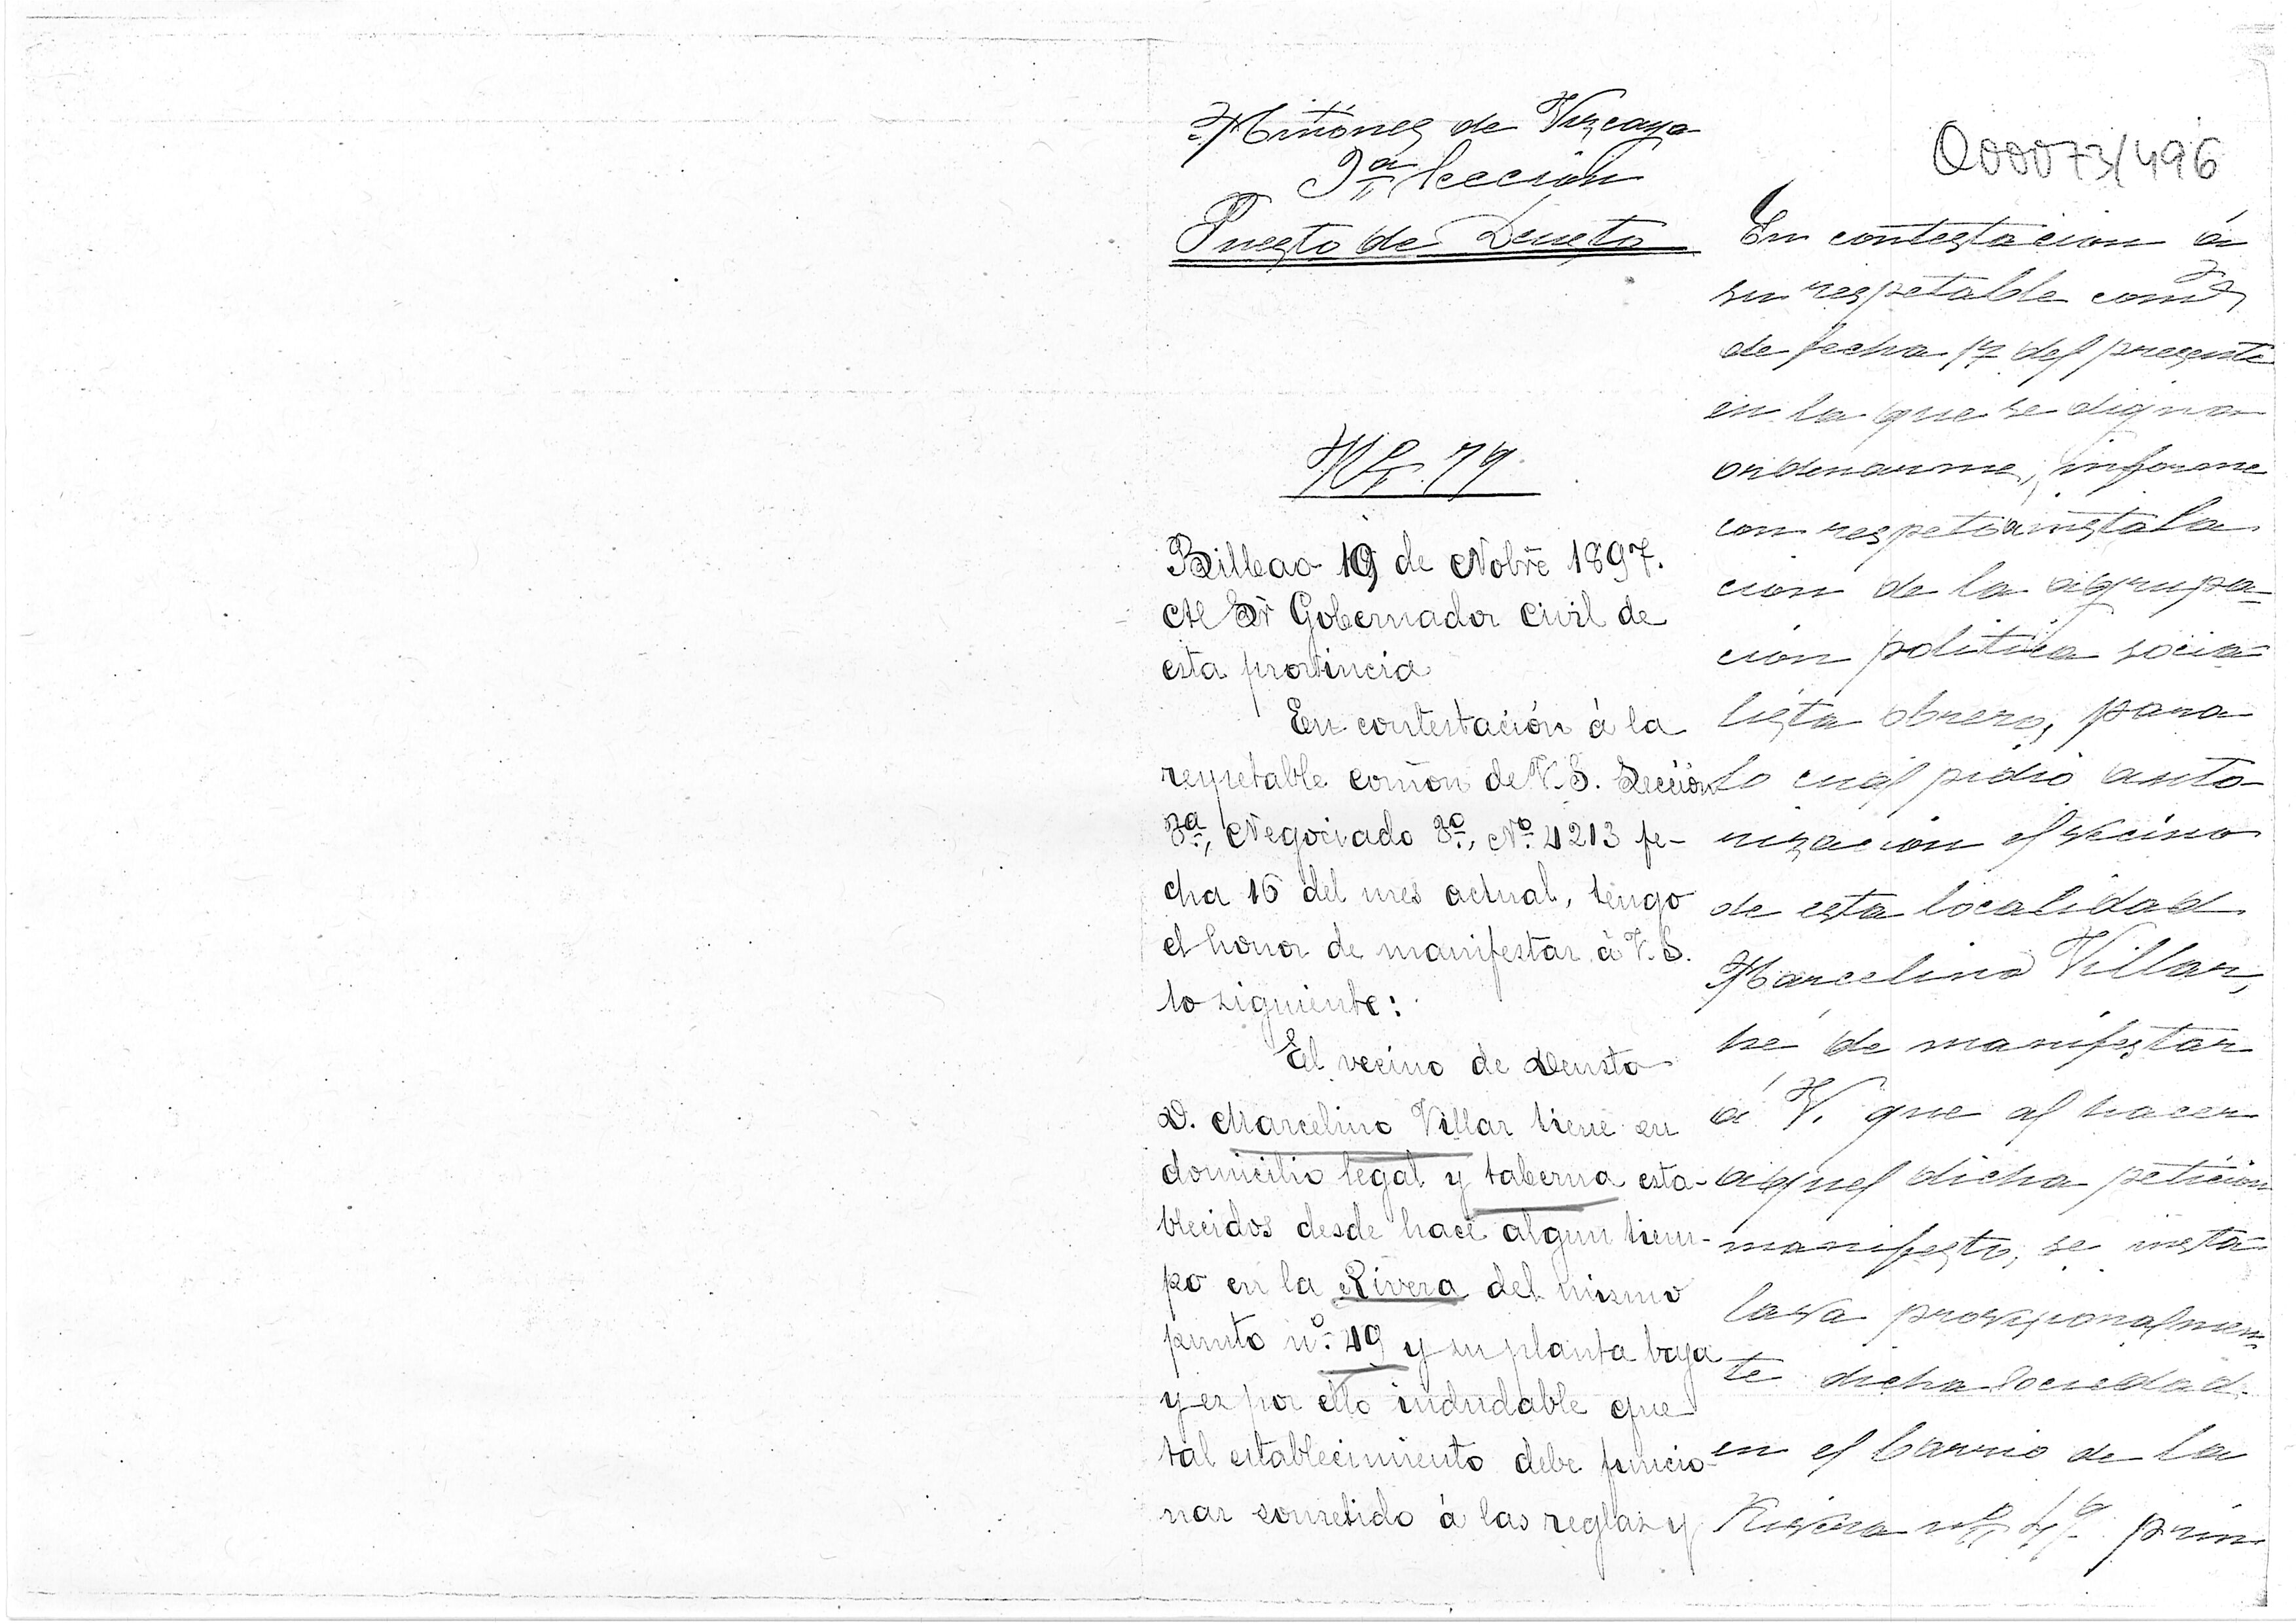 Miñones de Vizcaya
Sección
Puesto de Deusto
Nº 79
Bilbao 19 de Nobre 1897.
Al Sr Gobernador Civil de
esta provincia
En contestación á la
respetable comon de V.S. Sección
3ª, Negociado 3º, Nº 4213 fe-
cha 16 del mes actual, tengo
el honor de manifestar á V.S.
lo siguiente:
El vecino de Deusto
D. Marcelino Villar tiene su
domicilio legal y taberna esta-
blecidos desde hace algun tiem-
po en la Rivera del mismo
punto nº 49 y su planta baja
y es por ello indudable que
tal establecimiento debe funcio-
nar sometido á las reglas y
Q00073/496
En contestacion á
su respetable comon
de fecha 17 del presente
en la que se digna
ordenarme, informe
con respeto a instala
cion de la agrupa-
cion politica socia-
lista obrero, para
lo cual pidió auto-
rizacion el vecino
de esta localidad
Marcelino Villar,
hé de manifestar
á V. que al hacer
aquel dicha peticion
manifesto, se insta-
lava provisionalmen-
te dicha Sociedad
en el barrio de la
Rivera nº 49 prin